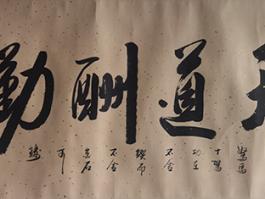 天道酬勤
駑馬十駕功在不舍鍥而不舍金石可鏤